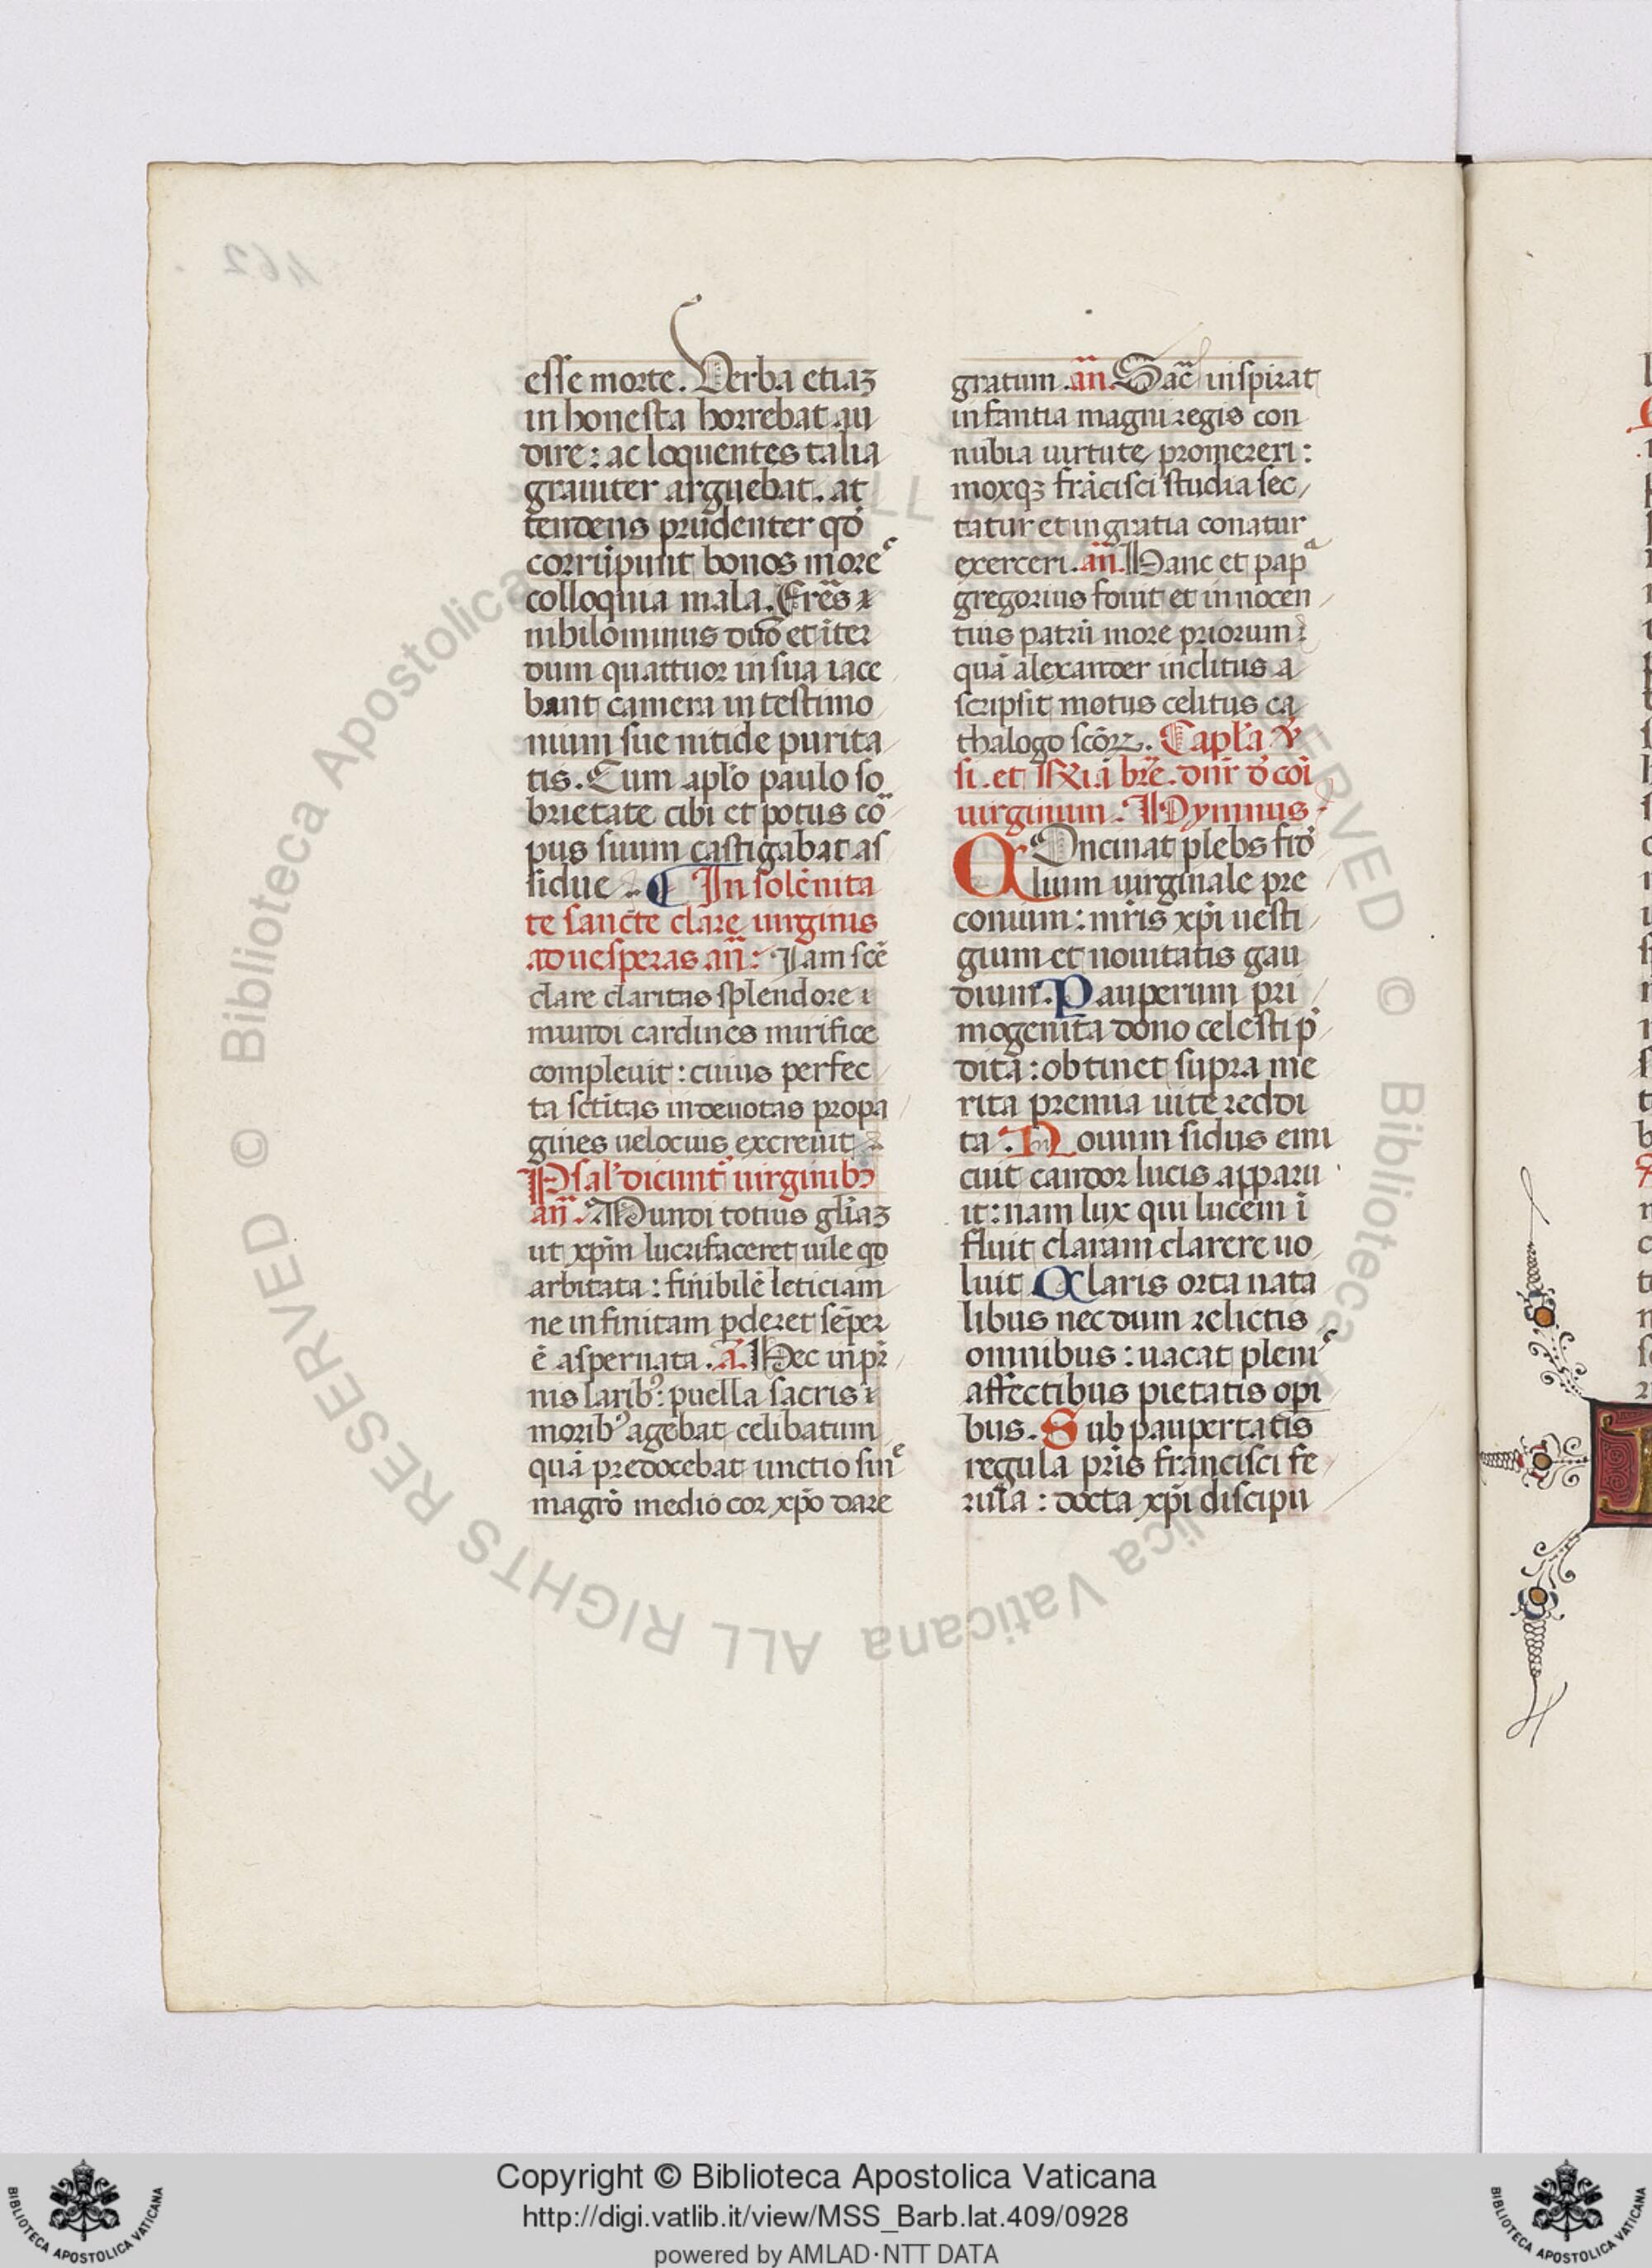 esse morte. Verba etiaz
in honesta horrebat au
dire: ac loquentes talia
grauiter arguebat. at
tendens prudenter qď
corrūpunt bonos moreˢ
colloquia mala. Fr̄es ⁊
nihilominus duo et iter
dum quattuor in sua iace
bant camera in testimo
nium sue nitide purita
tis. Cum apl'o paulo so
brietate cibi et potus cō
pus suum castigabat as
sidue. In solēnita
te sancte clare uirginis
ad uesperas añ: Iam scē
clare claritas splendore ⁊
mundi cardines mirifice
compleuit: cuius perfec
ta sctitas in deuotas propa
gines uelocius excreuit
Psal' dicunt' uirginibȝ
añ. Mundi totius gl'iaz
ut xp̄m lucrifaceret uile qď
arbitata: finibilē leticiam
ne in finitam pderet sēper
ē aspernata. ā. Hec in pr̄
nis laribꝰ: puella sacris ⁊
moribꝰ agebat celibatum
quā predocebat unctio sinᵉ
magrō medio cor xp̄o dare
gratum. añ. Sac̄ inspirat
infantia magni regis con
nubia uirtute promereri:
moxqȝ frācisci studia sec
tatur et in gratia conatur
exerceri. añ. Hanc et papᵃ
gregorius fouit et innocen
tius patrū more priorum:
quā alexander inclitus a
scripsit motus celitus ca
thalogo scōrz. Capl'a v̄
si. et R̄ia br̄e. dn̄r ď coi
uirginum. Hymnus
Concinat plebs fid
lium uirginale pre
conium: mr̄is xp̄i uesti
gium et nouitatis gau
dium. Pauperum pri
mogenita dono celesti p̄
dita: obtinet supra me
rita premia uite reddi
ta. Nouum sidus emi
cuit candor lucis apparu
it: nam lux qui lucem ī
fluit claram clarere uo
luit Claris orta nata
libus nec dum relictis
omnibus: uacat pleniˢ
affectibus pietatis opi
bus. Sub paupertatis
regula pr̄is francisci fe
rula: docta xp̄i discipu
462
© Biblioteca Apostolica Vaticana ALL RIGHTS RESERVED
Copyright © Biblioteca Apostolica Vaticana
http://digi.vatlib.it/view/MSS_Barb.lat.409/0928
powered by AMLAD·NTT DATA
BIBLIOTECA APOSTOLICA VATICANA
BIBLIOTECA APOSTOLICA VATICANA